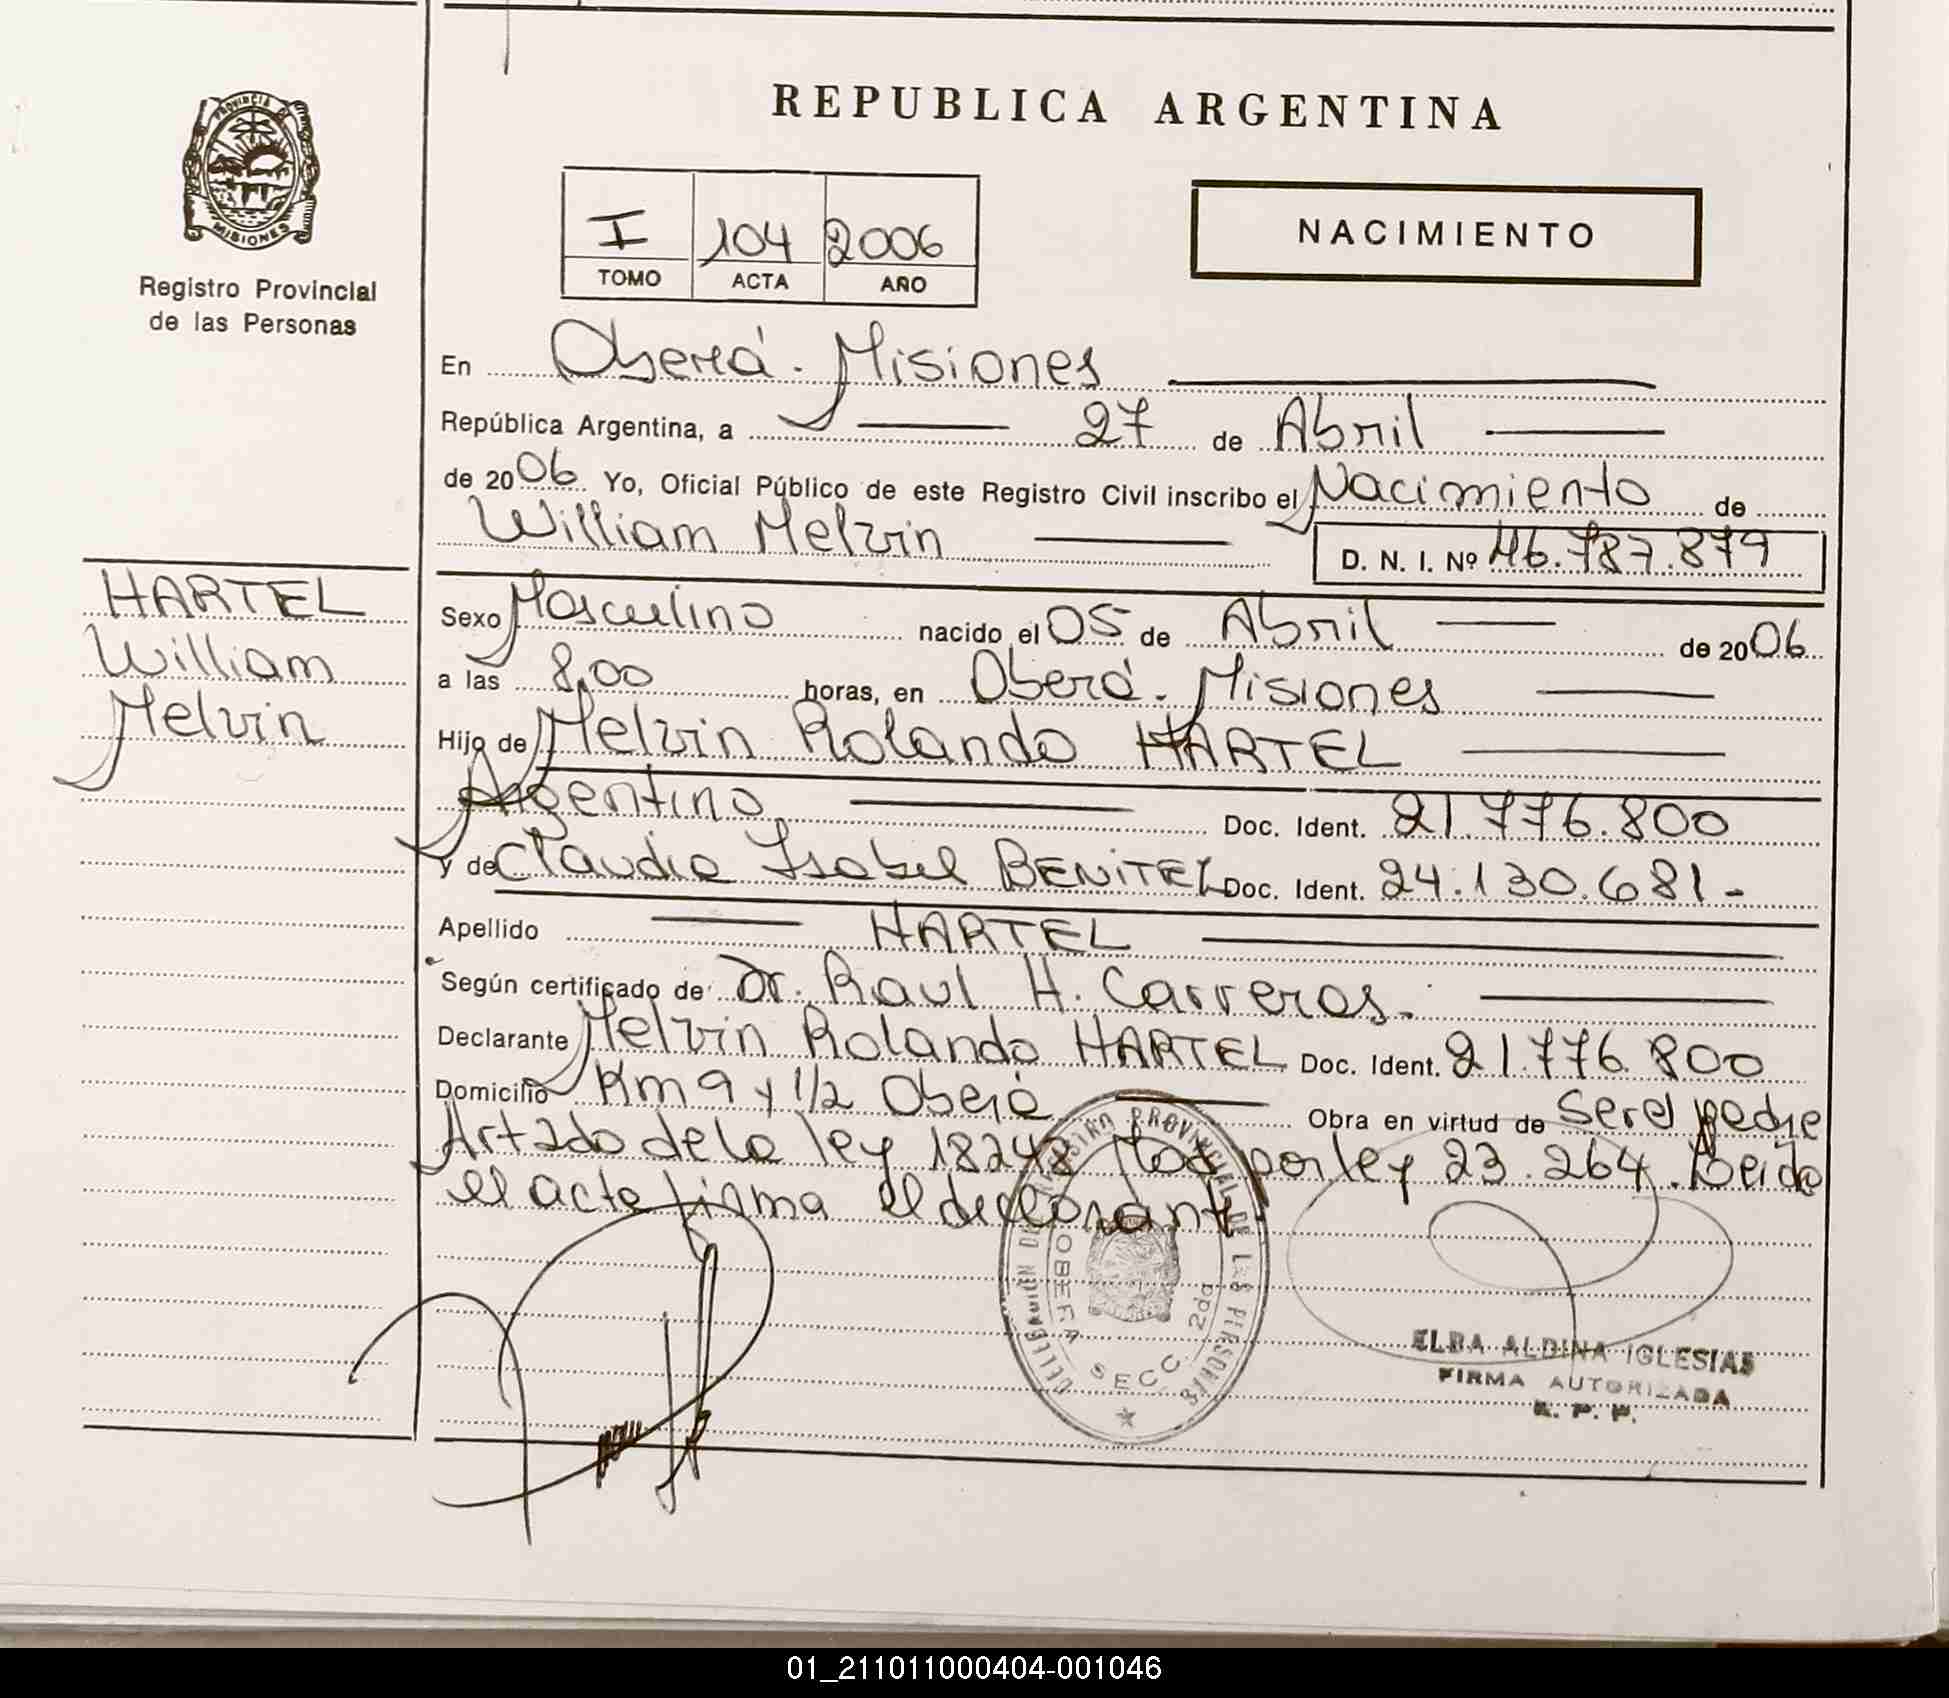 REPUBLICA ARGENTINA
PROVINCIA DE
MISIONES
Registro Provincial
de las Personas
I 104 2006
TOMO ACTA AÑO
NACIMIENTO
En Oberá - Misiones
República Argentina, a 27 de Abril
de 2006 Yo, Oficial Público de este Registro Civil inscribo el Nacimiento de
William Melvin D. N. I. Nº 46.787.879
HARTEL
William
Melvin
Sexo Masculino nacido el 05 de Abril de 2006
a las 8,00 horas, en Oberá - Misiones
Hijo de Melvin Rolando HARTEL
Argentino Doc. Ident. 21.776.800
y de Claudia Isabel BENITEZ Doc. Ident. 24.130.681-
Apellido HARTEL
Según certificado de Dr. Raul H. Carreras.
Declarante Melvin Rolando HARTEL Doc. Ident. 21.776.800
Domicilio Km 9 y 1/2 Oberá Obra en virtud de Ser el padre
Art 2do de la ley 18248 Mod por ley 23.264. Leida
el acta firma el declarante
DELEGACION DEL REGISTRO PROVINCIAL DE LAS PERSONAS
OBERA SECC. 2da
ELBA ALDINA IGLESIAS
FIRMA AUTORIZADA
R. P. P.
01_211011000404-001046